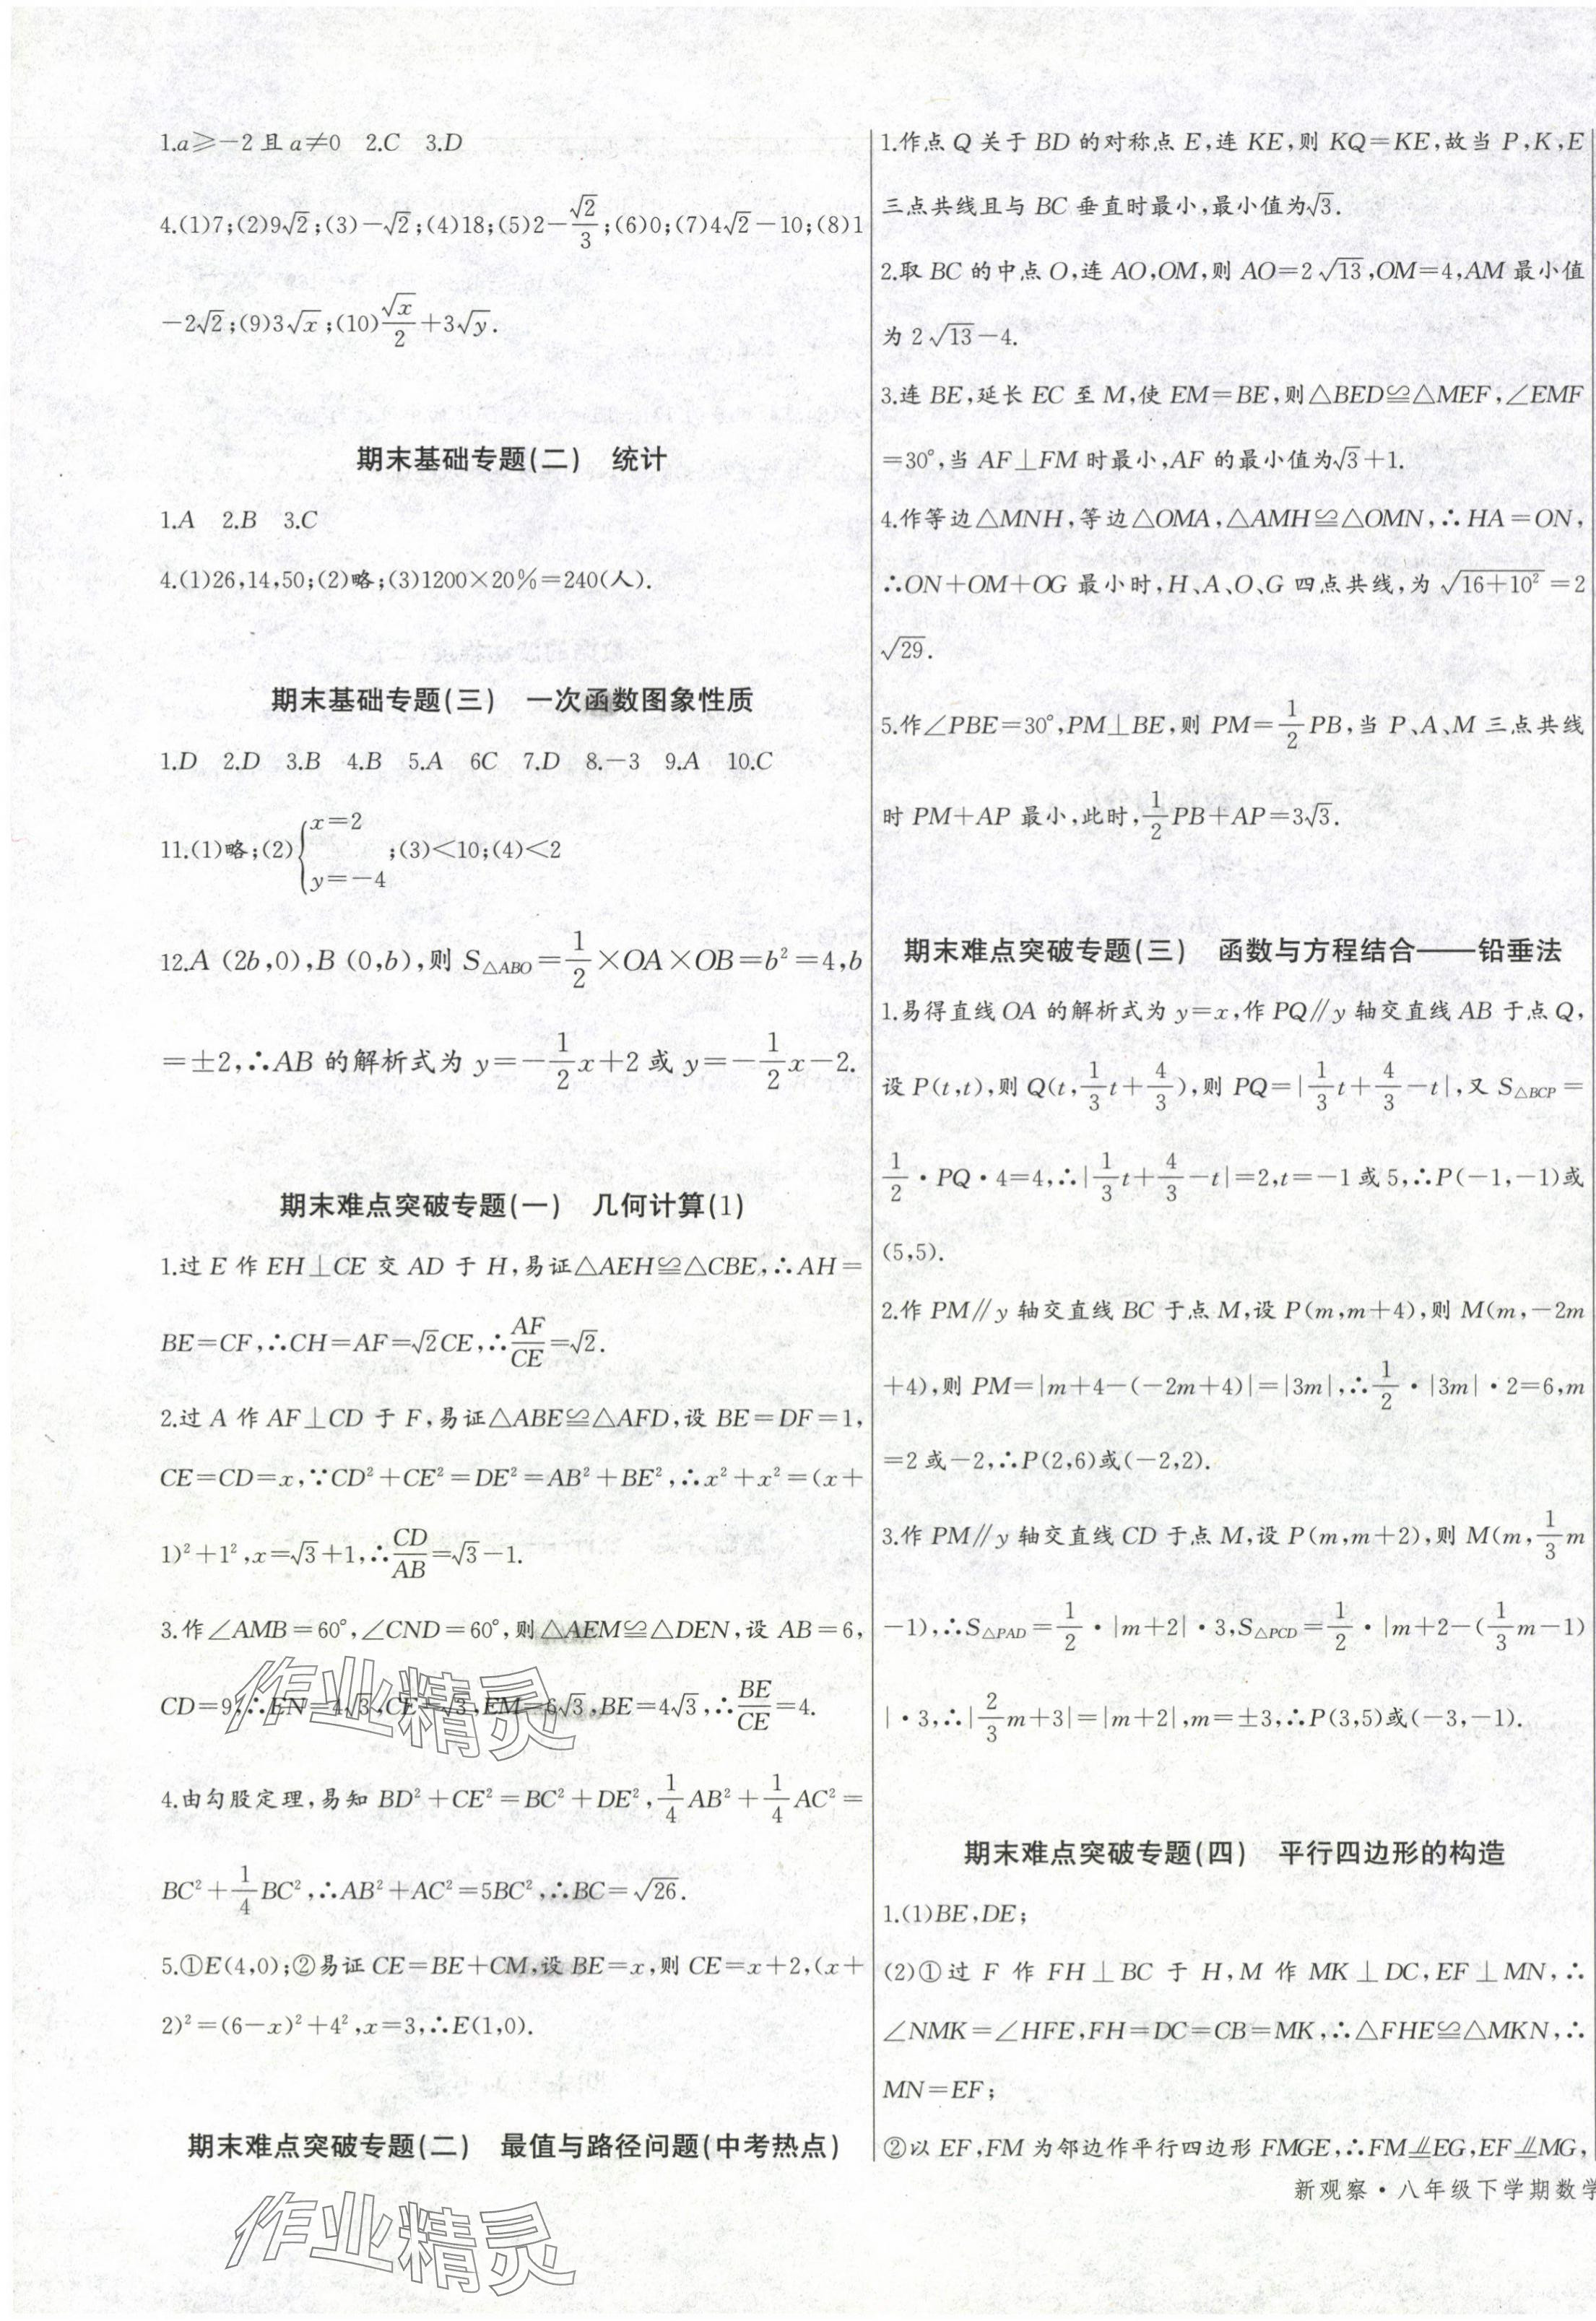 1.a≥-2且a≠0 2.C 3.D
4.(1)7;(2)9√2;(3)-√2;(4)18;(5)2-√2/3;(6)0;(7)4√2-10;(8)1
-2√2;(9)3√x;(10)√x/2+3√y.
期末基础专题(二) 统计
1.A 2.B 3.C
4.(1)26,14,50;(2)略;(3)1200×20%=240(人).
期末基础专题(三) 一次函数图象性质
1.D 2.D 3.B 4.B 5.A 6C 7.D 8.-3 9.A 10.C
11.(1)略;(2){x=2 y=-4;(3)<10;(4)<2
12.A(2b,0),B(0,b),则S△ABO=1/2×OA×OB=b²=4,b
=±2,∴AB的解析式为y=-1/2x+2或y=-1/2x-2.
期末难点突破专题(一) 几何计算(1)
1.过E作EH⊥CE交AD于H,易证△AEH≌△CBE,∴AH=
BE=CF,∴CH=AF=√2CE,∴AF/CE=√2.
2.过A作AF⊥CD于F,易证△ABE≌△AFD,设BE=DF=1,
CE=CD=x,∵CD²+CE²=DE²=AB²+BE²,∴x²+x²=(x+
1)²+1²,x=√3+1,∴CD/AB=√3-1.
3.作∠AMB=60°,∠CND=60°,则△AEM≌△DEN,设AB=6,
CD=9,∴EN=4√3,CE=√3,EM=6√3,BE=4√3,∴BE/CE=4.
4.由勾股定理,易知BD²+CE²=BC²+DE²,1/4AB²+1/4AC²=
BC²+1/4BC²,∴AB²+AC²=5BC²,∴BC=√26.
5.①E(4,0);②易证CE=BE+CM,设BE=x,则CE=x+2,(x+
2)²=(6-x)²+4²,x=3,∴E(1,0).
期末难点突破专题(二) 最值与路径问题(中考热点)
作业精灵
作业精灵
1.作点Q关于BD的对称点E,连KE,则KQ=KE,故当P,K,E
三点共线且与BC垂直时最小,最小值为√3.
2.取BC的中点O,连AO,OM,则AO=2√13,OM=4,AM最小值
为2√13-4.
3.连BE,延长EC至M,使EM=BE,则△BED≌△MEF,∠EMF
=30°,当AF⊥FM时最小,AF的最小值为√3+1.
4.作等边△MNH,等边△OMA,△AMH≌△OMN,∴HA=ON,
∴ON+OM+OG最小时,H、A、O、G四点共线,为√(16+10²)=2
√29.
5.作∠PBE=30°,PM⊥BE,则PM=1/2PB,当P、A、M三点共线
时PM+AP最小,此时,1/2PB+AP=3√3.
期末难点突破专题(三) 函数与方程结合——铅垂法
1.易得直线OA的解析式为y=x,作PQ∥y轴交直线AB于点Q,
设P(t,t),则Q(t,1/3t+4/3),则PQ=|1/3t+4/3-t|,又S△BCP=
1/2·PQ·4=4,∴|1/3t+4/3-t|=2,t=-1或5,∴P(-1,-1)或
(5,5).
2.作PM∥y轴交直线BC于点M,设P(m,m+4),则M(m,-2m
+4),则PM=|m+4-(-2m+4)|=|3m|,∴1/2·|3m|·2=6,m
=2或-2,∴P(2,6)或(-2,2).
3.作PM∥y轴交直线CD于点M,设P(m,m+2),则M(m,1/3m
-1),∴S△PAD=1/2·|m+2|·3,S△PCD=1/2·|m+2-(1/3m-1)
|·3,∴|2/3m+3|=|m+2|,m=±3,∴P(3,5)或(-3,-1).
期末难点突破专题(四) 平行四边形的构造
1.(1)BE,DE;
(2)①过F作FH⊥BC于H,M作MK⊥DC,EF⊥MN,∴
∠NMK=∠HFE,FH=DC=CB=MK,∴△FHE≌△MKN,∴
MN=EF;
②以EF,FM为邻边作平行四边形FMGE,∴FM⫫EG,EF⫫MG,
新观察·八年级下学期数学